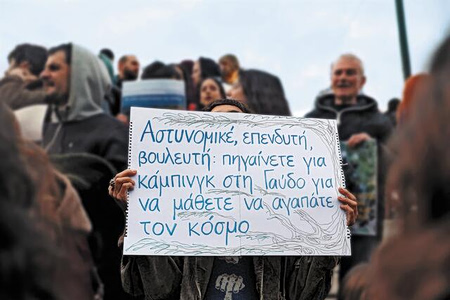 Αστυνομικέ, επενδυτή,
βουλευτή: πηγαίνετε για
κάμπινγκ στη Γαύδο για
να μάθετε να αγαπάτε
τον κόσμο